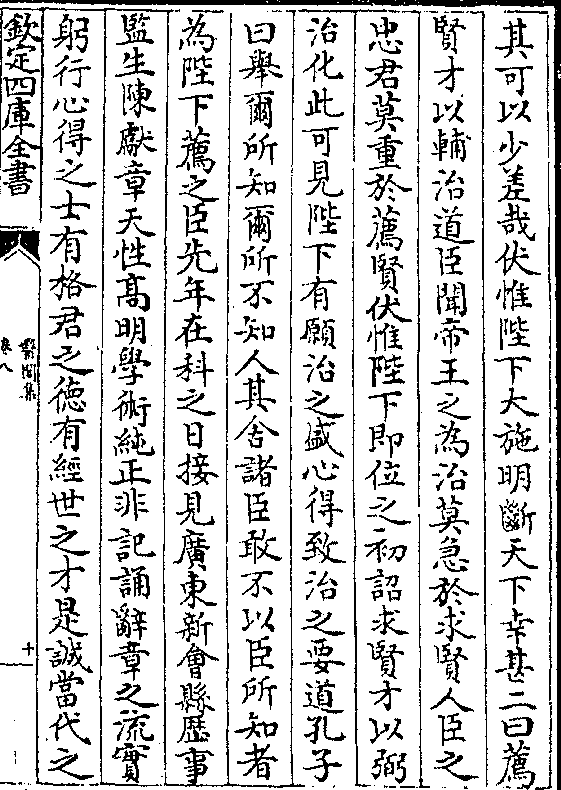 其可以少差哉伏惟陛下大施明斷天下幸甚二曰薦
賢才以輔治道臣聞帝王之為治莫急於求賢人臣之
忠君莫重於薦賢伏惟陛下即位之初詔求賢才以弼
治化此可見陛下有願治之盛心得致治之要道孔子
曰舉爾所知爾所不知人其舍諸臣敢不以臣所知者
為陛下薦之臣先年在科之日接見廣東新會縣歴事
監生陳獻章天性高明學術純正非記誦辭章之流實
躬行心得之士有格君之德有經世之才是誠當代之
欽定四庫全書
醫閭集
卷八
十